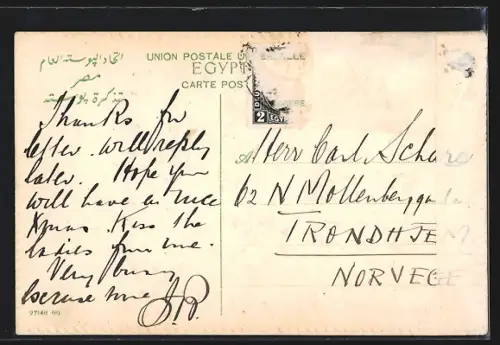 اتحاد البوستة العام
مصر
تذكرة بوستة
UNION POSTALE UNIVERSELLE
EGYPT
CARTE POST
Thanks for
letter. will reply
later. Hope you
will have a nice
Xmas. Kiss the
ladies from me.
Very busy
excuse me J.R.
2
EGYP
Herr Carl
62 N Mollenberggata
TRONDHJEM
NORVEGE